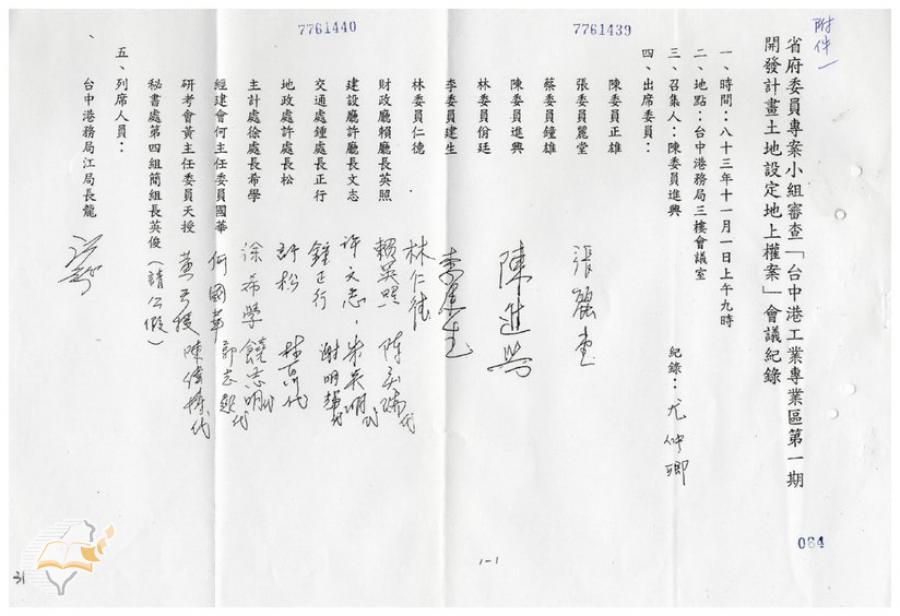 附件一
7761439
7761440
省府委員專案小組審查「台中港工業專業區第一期
開發計畫土地設定地上權案」會議紀錄
一、時間：八十三年十一月一日上午九時
二、地點：台中港務局三樓會議室
三、召集人：陳委員進興
紀錄：尤仲卿
四、出席委員：
陳委員正雄
張委員麗堂 張麗堂
蔡委員鐘雄
陳委員進興 陳進興
林委員份廷
李委員建生 李建生
林委員仁德 林仁德
財政廳賴廳長英照 賴英照
建設廳許廳長文志 許文志
交通處鍾處長正行 鍾正行 謝明輝代
地政處許處長松 許松
主計處徐處長希學 徐希學 饒志明代
經建會何主任委員國華 何國華
研考會黃主任委員天授 黃天授
秘書處第四組簡組長英俊（請公假）
五、列席人員：
台中港務局江局長龍
084
1-1
31